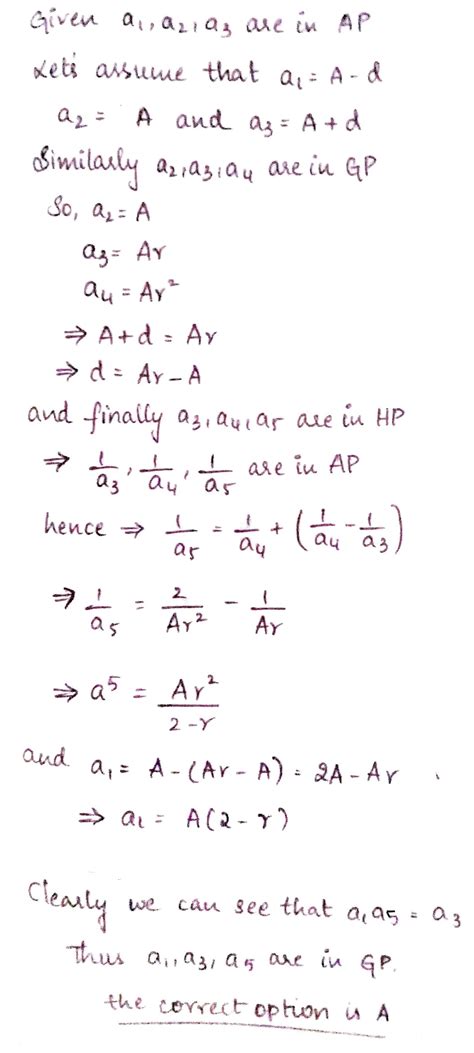 Given a₁, a₂, a₃ are in AP
Let's assume that a₁ = A - d
a₂ = A and a₃ = A + d
Similarly a₂, a₃, a₄ are in GP
So, a₂ = A
a₃ = Ar
a₄ = Ar²
⇒ A + d = Ar
⇒ d = Ar - A
and finally a₃, a₄, a₅ are in HP
⇒ 1/a₃, 1/a₄, 1/a₅ are in AP
hence ⇒ 1/a₅ = 1/a₄ + (1/a₄ - 1/a₃)
⇒ 1/a₅ = 2/Ar² - 1/Ar
⇒ a⁵ = Ar²/2-r
and a₁ = A - (Ar - A) = 2A - Ar
⇒ a₁ = A(2 - r)
Clearly we can see that a₁a₅ = a₃
Thus a₁, a₃, a₅ are in GP.
the correct option is A